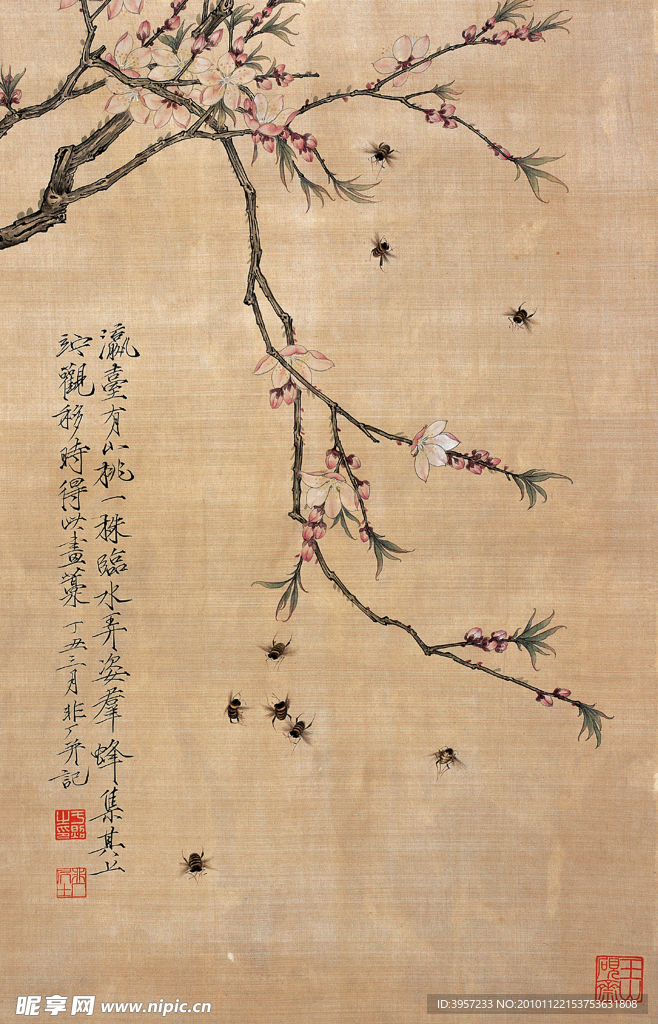 瀛臺有小桃一株臨水弄姿羣蜂集其上
諦觀移時得此畫藁 丁丑三月 非厂并記
于照
之印
玉山
硯齋
昵享网 www.nipic.cn
ID:3957233 NO:20101122153753631808